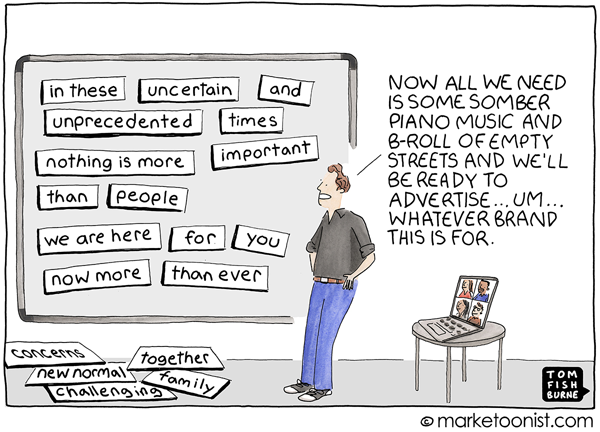 in these uncertain and
unprecedented times
nothing is more important
than people
we are here for you
now more than ever
NOW ALL WE NEED
IS SOME SOMBER
PIANO MUSIC AND
B-ROLL OF EMPTY
STREETS AND WE'LL
BE READY TO
ADVERTISE...UM...
WHATEVER BRAND
THIS IS FOR.
concerns
together
new normal
family
challenging
TOM
FISH
BURNE
© marketoonist.com